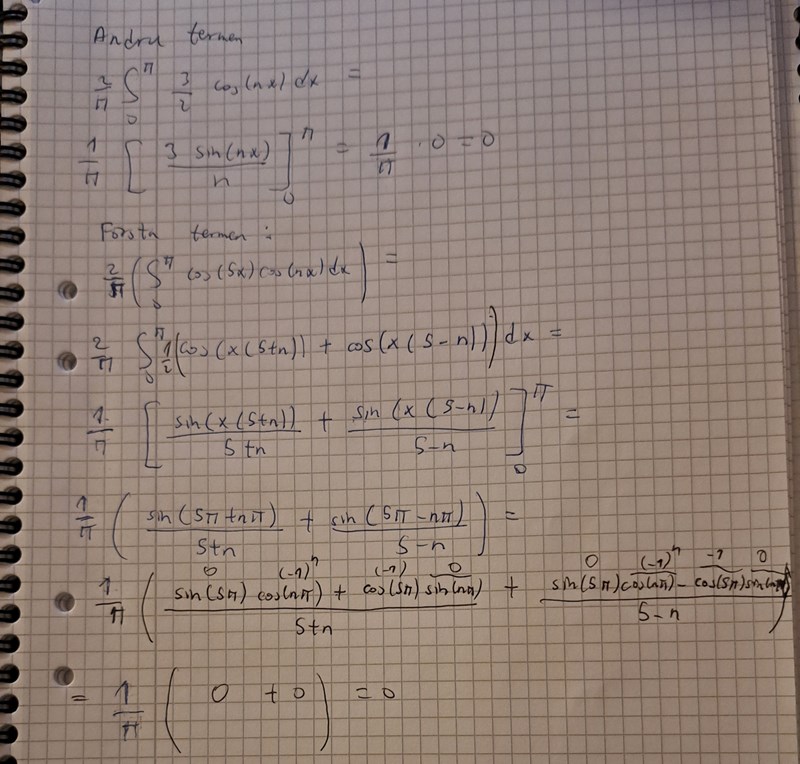 Andra termen
2/π ∫₀^π 3/2 cos(nx) dx =
1/π [ 3 sin(nx)/n ]₀^π = 1/π · 0 = 0
Första termen :
2/π ( ∫₀^π cos(5x) cos(nx) dx ) =
2/π ∫₀^π 1/2 (cos(x(5+n)) + cos(x(5-n))) dx =
1/π [ sin(x(5+n))/(5+n) + sin(x(5-n))/(5-n) ]₀^π =
1/π ( sin(5π+nπ)/(5+n) + sin(5π-nπ)/(5-n) ) =
0 (-1)^n (-1) 0 0 (-1)^n -1 0
1/π ( (sin(5π) cos(nπ) + cos(5π) sin(nπ))/(5+n) + (sin(5π) cos(nπ) - cos(5π) sin(nπ))/(5-n) )
= 1/π ( 0 + 0 ) = 0